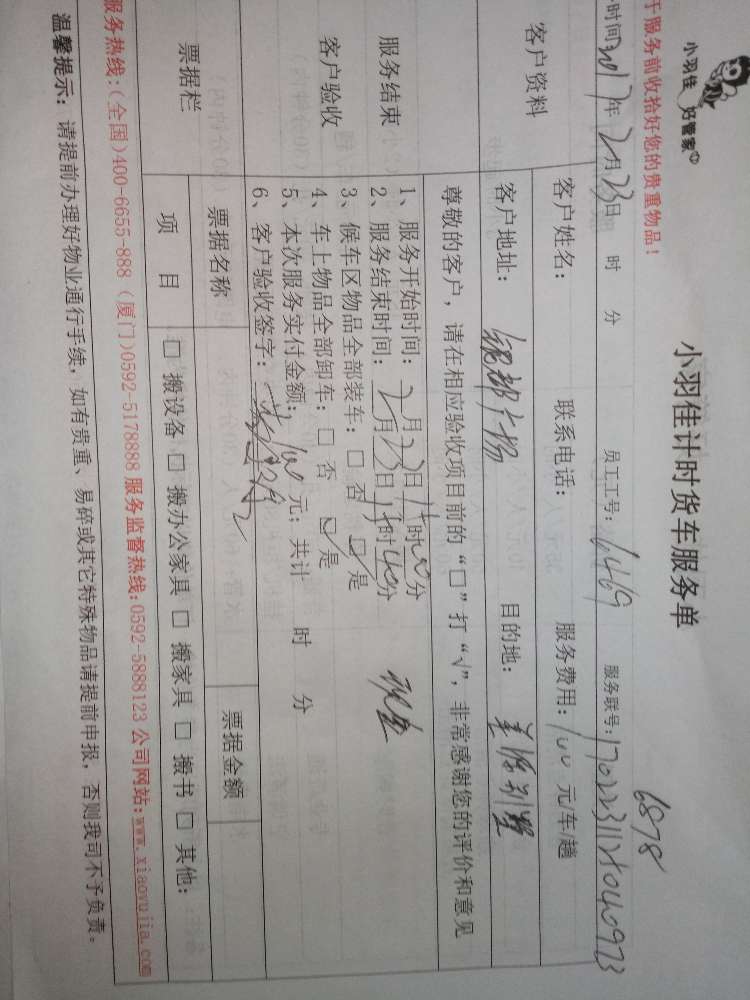 小羽佳 好管家
小羽佳计时货车服务单
6878
于服务前收拾好您的贵重物品！
时间2017年2月23日 时 分 员工工号：6469 服务联号：
客户资料
客户姓名： 联系电话： 服务费用：100 元/车/趟
客户地址： 目的地： 别墅
尊敬的客户，请在相应验收项目前的“□”打“√”，非常感谢您的评价和意见
服务结束
客户验收
1、服务开始时间：2月23日 时00分
2、服务结束时间：2月23日 时40分
3、候车区物品全部装车：□ 否 ☑ 是
4、车上物品全部卸车：□ 否 ☑ 是
5、本次服务实付金额：100元；共计 时 分
6、客户验收签字：
票据栏
票据名称 票据金额
项 目 □ 搬设备 □ 搬办公家具 □ 搬家具 □ 搬书 □ 其他：
服务热线：(全国)400-6655-888 (厦门)0592-5178888 服务监督热线：0592-5888123 公司网站：www.xiaoyujia.com
温馨提示：请提前办理好物业通行手续，如有贵重、易碎或其它特殊物品请提前申报，否则我司不予负责。